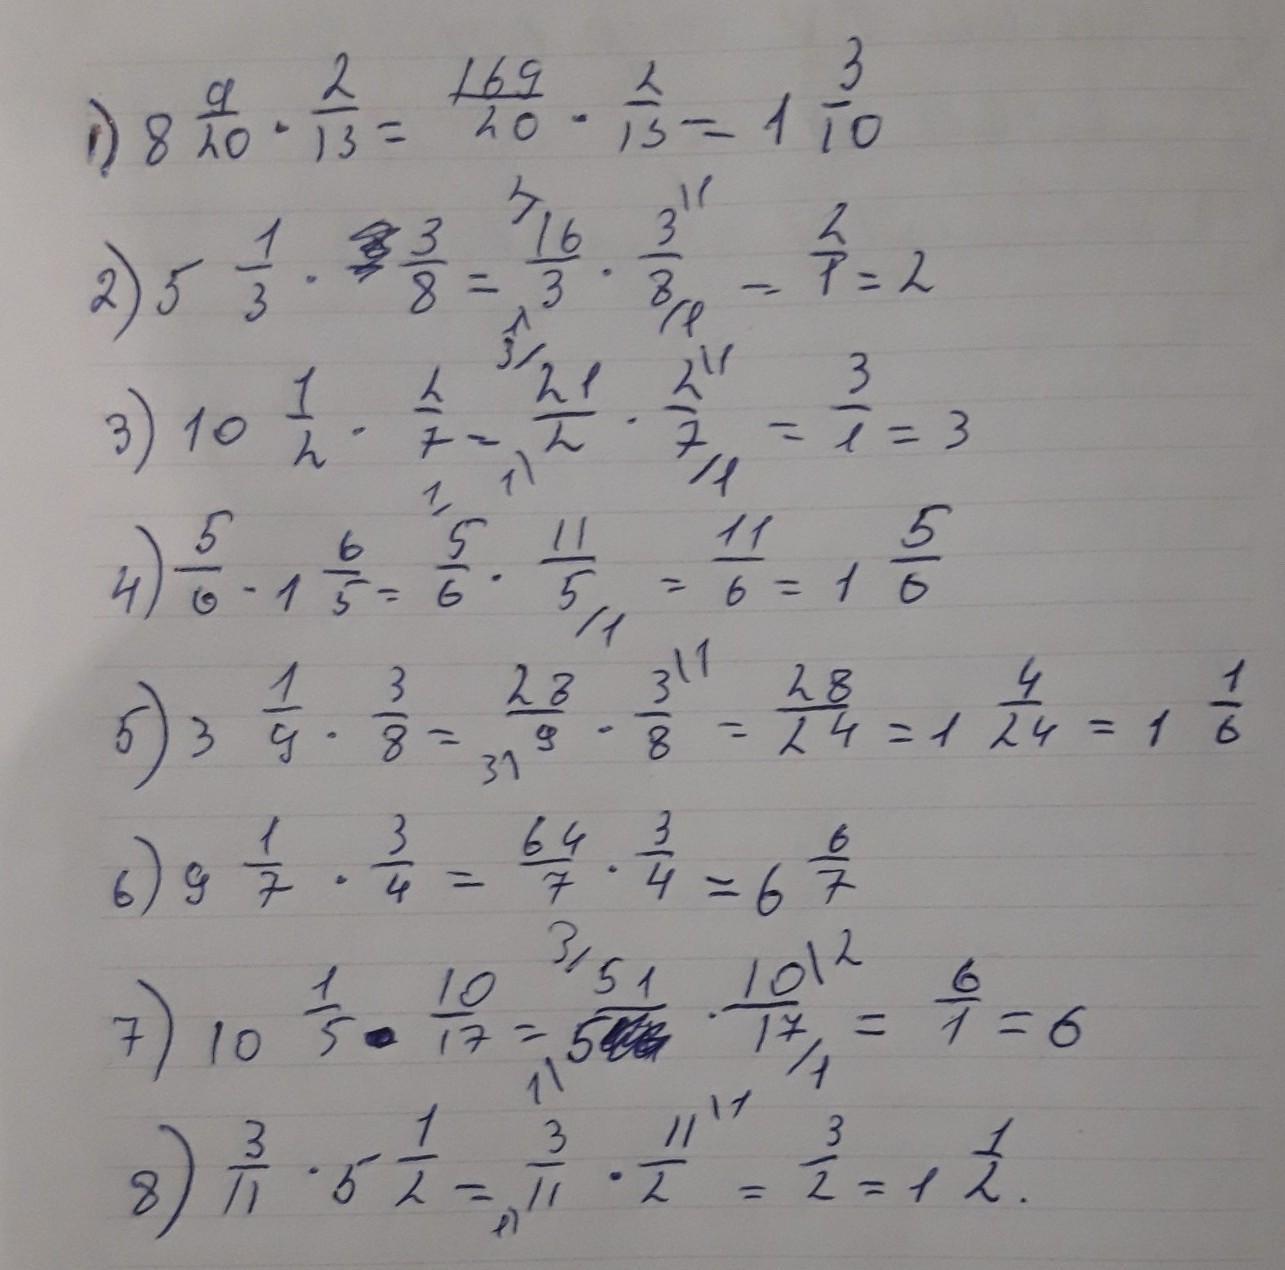 1) 8 9/20 · 2/13 = 169/20 · 2/13 = 1 3/10
2) 5 1/3 · 3/8 = 16/3 · 3/8 = 2/1 = 2
3) 10 1/2 · 2/7 = 21/2 · 2/7 = 3/1 = 3
4) 5/6 · 1 6/5 = 5/6 · 11/5 = 11/6 = 1 5/6
5) 3 1/9 · 3/8 = 28/9 · 3/8 = 28/24 = 1 4/24 = 1 1/6
6) 9 1/7 · 3/4 = 64/7 · 3/4 = 6 6/7
7) 10 1/5 · 10/17 = 51/5 · 10/17 = 6/1 = 6
8) 3/11 · 5 1/2 = 3/11 · 11/2 = 3/2 = 1 1/2.